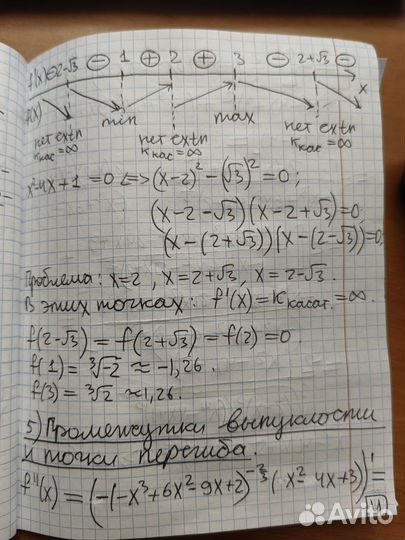 f'(x) ⊖ 2-√3 ⊖ 1 ⊕ 2 ⊕ 3 ⊖ 2+√3 ⊖
f(x) x
min max
нет extr нет extr нет extr
Kкас = ∞ Kкас = ∞ Kкас = ∞
x²-4x+1 = 0 <=> (x-2)² - (√3)² = 0;
(x-2-√3)(x-2+√3)=0;
(x-(2+√3))(x-(2-√3))=0
Проблема: x=2, x=2+√3, x=2-√3.
В этих точках: f'(x)=Kкасат.=∞.
f(2-√3) = f(2+√3) = f(2) = 0.
f(1) = ∛-2 ≈ -1,26.
f(3) = ∛2 ≈ 1,26.
5) Промежутки выпуклости
и точки перегиба.
f''(x) = (-(-x³+6x²-9x+2)^(-2/3) (x²-4x+3))' =
VI
Avito